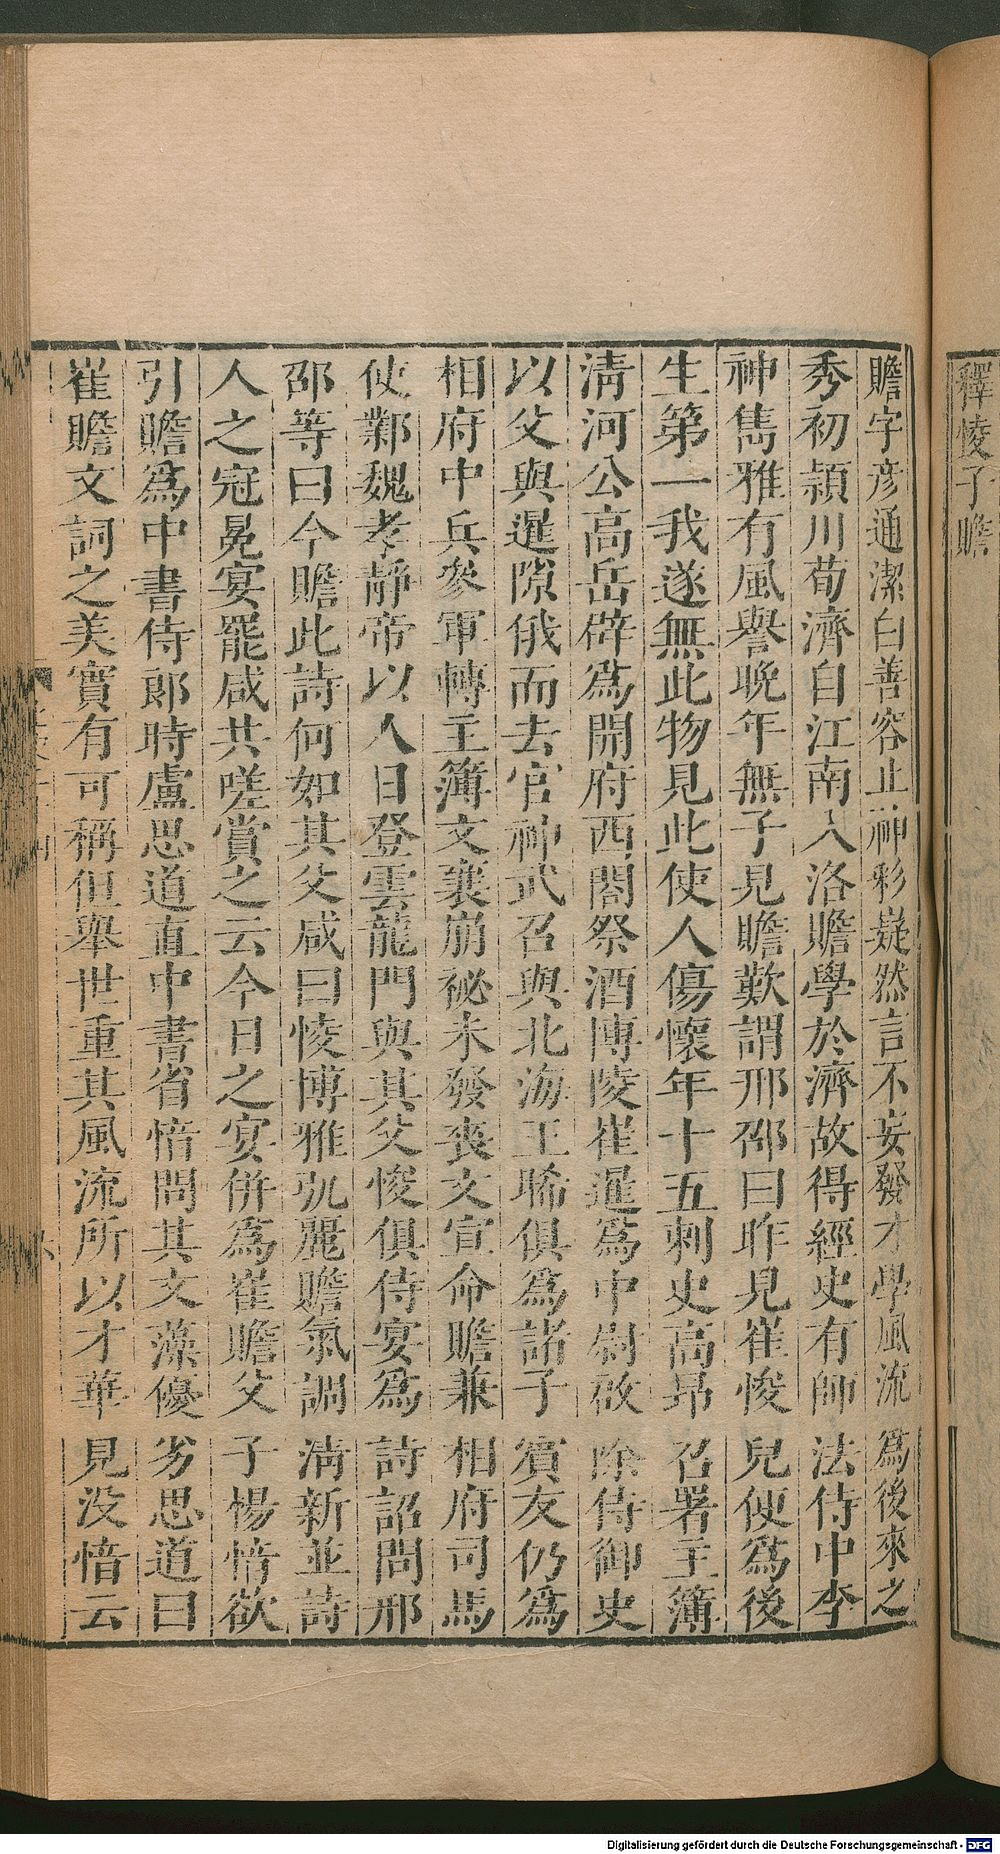 釋㥄子瞻
瞻字彦通潔白善容止神彩嶷然言不妄發才學風流為後來之
秀初潁川荀濟自江南入洛贍學於濟故得經史有師法侍中李
神雋雅有風譽晩年無子見瞻歎謂邢邵曰昨見崔㥄兒便為後
生第一我遂無此物見此使人傷懷年十五刺史高昂召署主簿
清河公高岳辟為開府西閤祭酒博陵崔暹為中尉啟除侍御史
以父與暹隙俄而去官神武召與北海王晞俱為諸子賓友仍為
相府中兵參軍轉主簿文襄崩祕未發喪文宣命贍兼相府司馬
使鄴魏孝靜帝以人日登雲龍門與其父㥄俱侍宴為詩詔問邢
邵等曰今贍此詩何如其父咸曰㥄博雅弘麗贍氣調清新並詩
人之冠冕宴罷咸共嗟賞之云今日之宴併為崔瞻父子楊愔欲
引瞻為中書侍郎時盧思道直中書省愔問其文藻優劣思道曰
崔瞻文詞之美實有可稱但舉世重其風流所以才華見没愔云
Digitalisierung gefördert durch die Deutsche Forschungsgemeinschaft - DFG